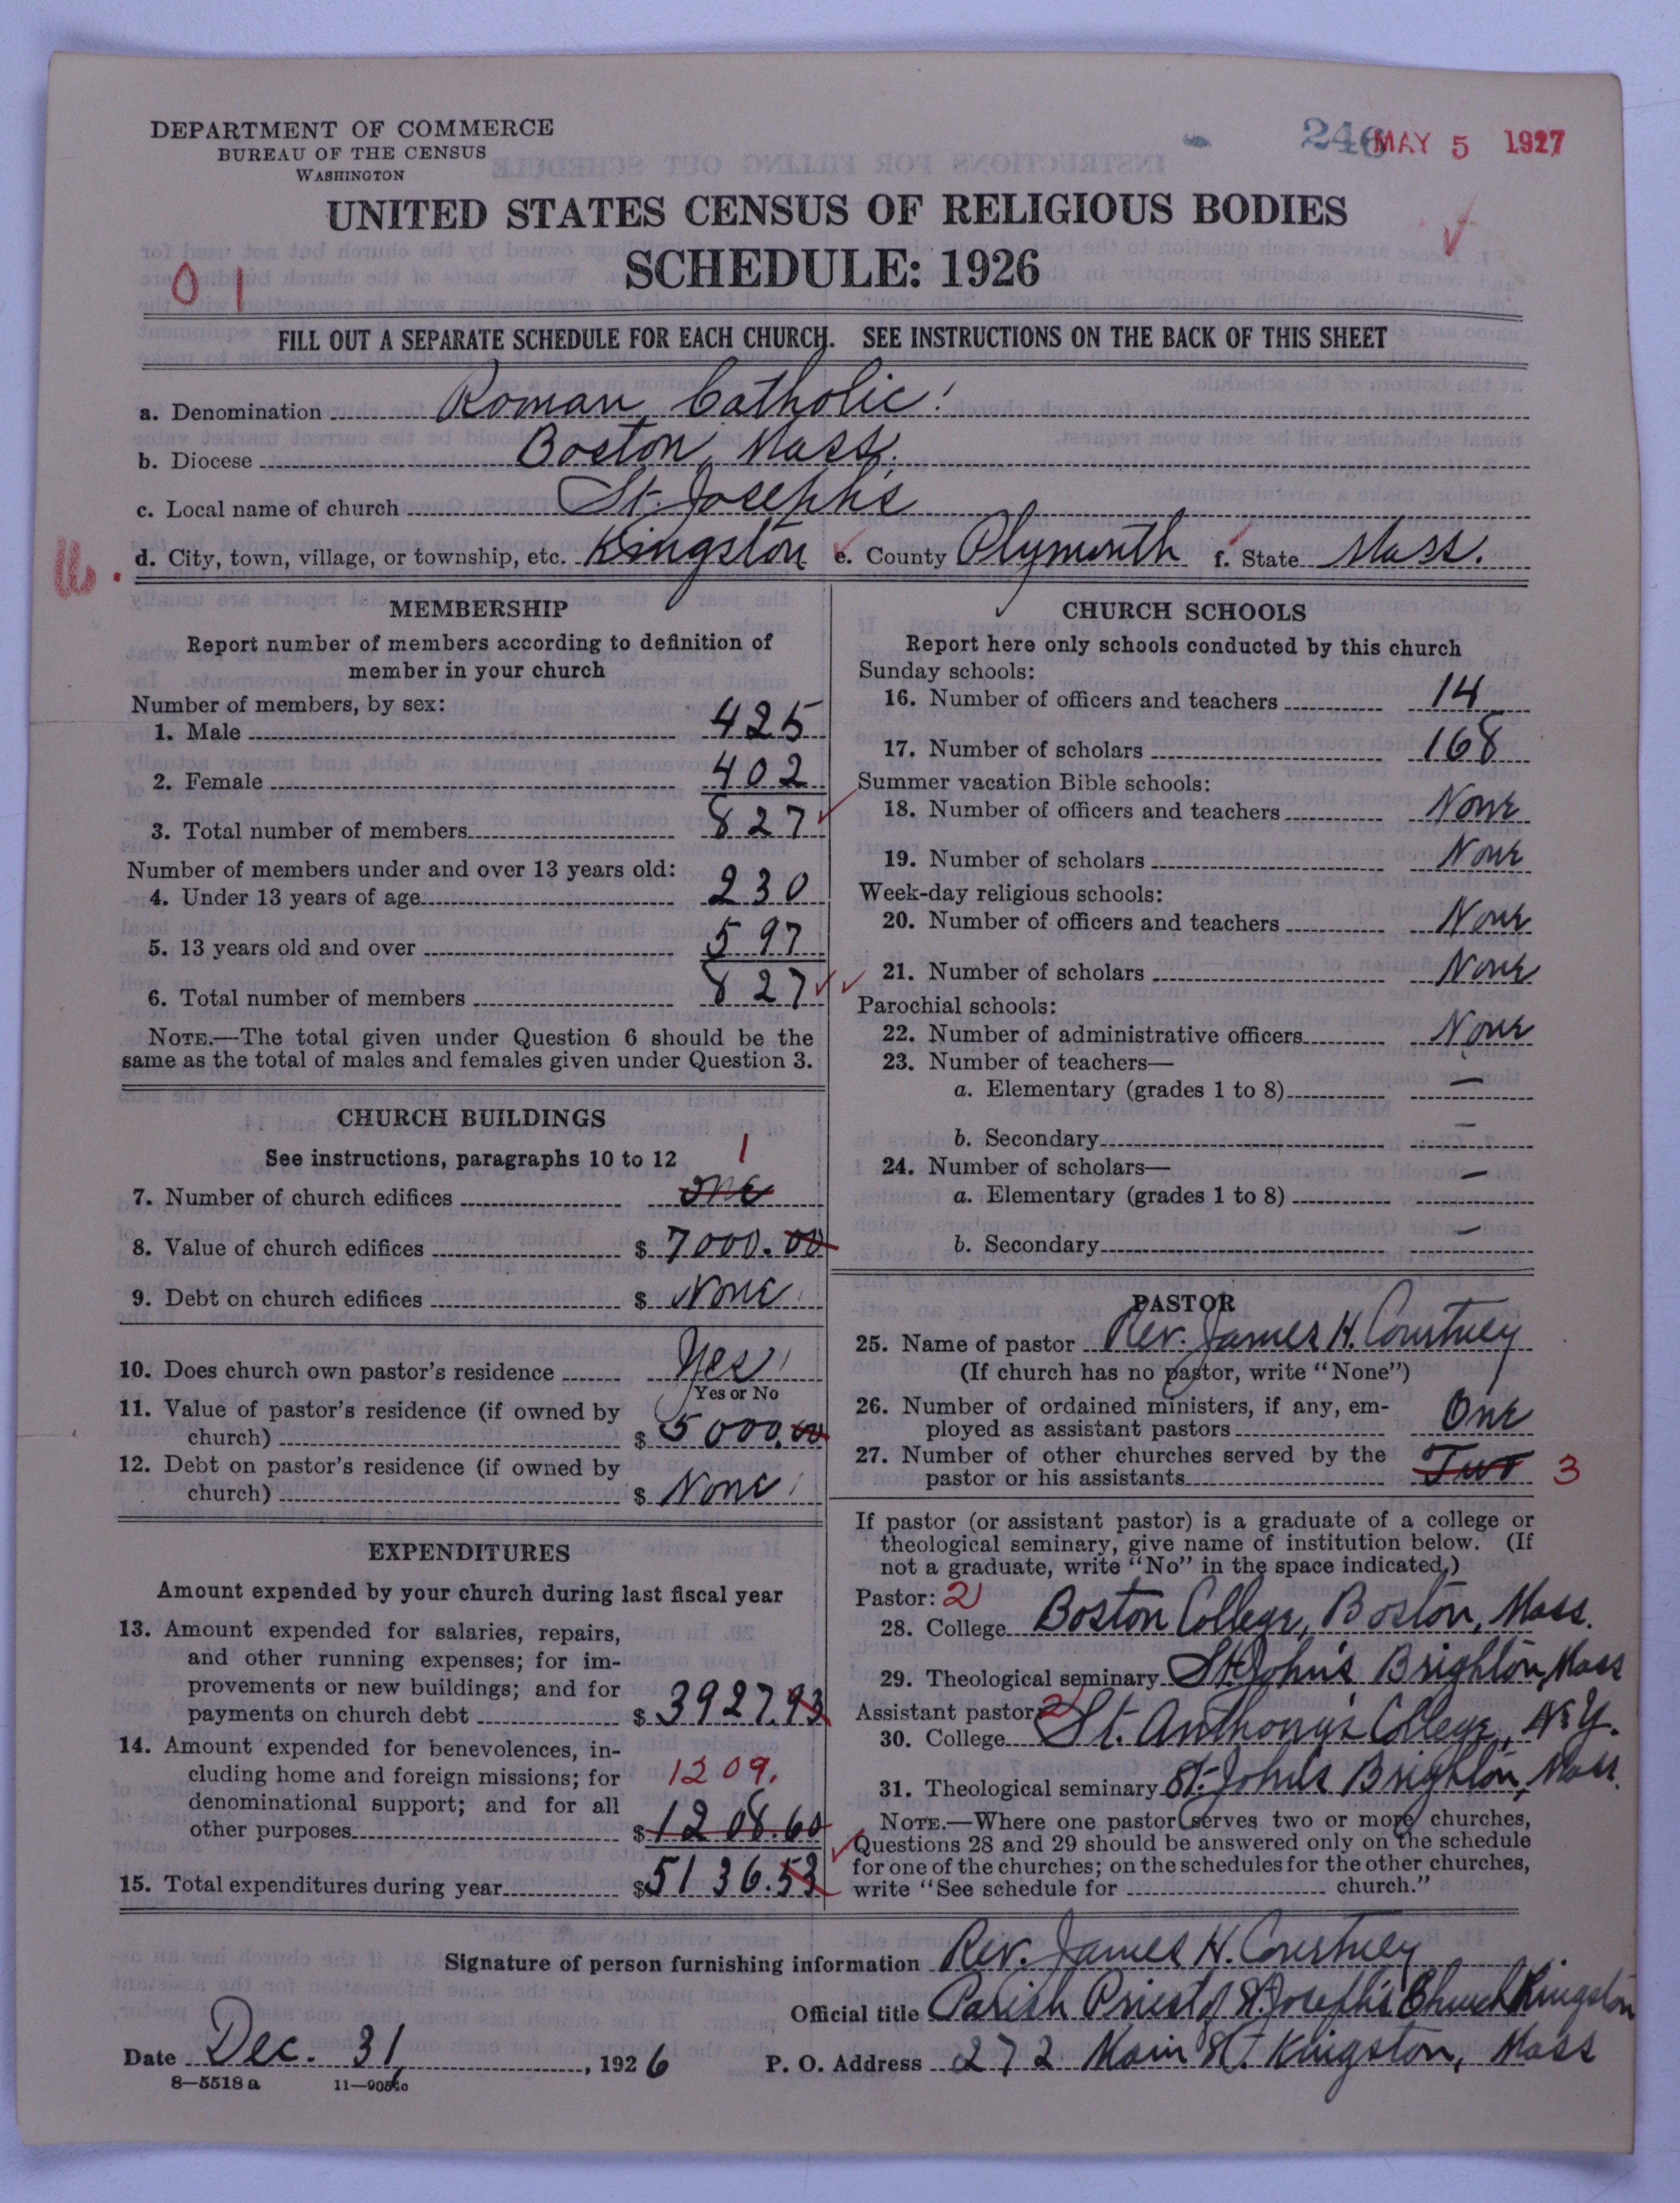 DEPARTMENT OF COMMERCE
BUREAU OF THE CENSUS
WASHINGTON
246 MAY 5 1927
UNITED STATES CENSUS OF RELIGIOUS BODIES
SCHEDULE: 1926
01
FILL OUT A SEPARATE SCHEDULE FOR EACH CHURCH. SEE INSTRUCTIONS ON THE BACK OF THIS SHEET
a. Denomination Roman Catholic
b. Diocese Boston, Mass.
c. Local name of church St. Joseph's
d. City, town, village, or township, etc. Kingston e. County Plymouth f. State Mass.
MEMBERSHIP
Report number of members according to definition of
member in your church
Number of members, by sex:
1. Male 425
2. Female 402
3. Total number of members 827
Number of members under and over 13 years old:
4. Under 13 years of age 230
5. 13 years old and over 597
6. Total number of members 827
NOTE.—The total given under Question 6 should be the
same as the total of males and females given under Question 3.
CHURCH BUILDINGS
See instructions, paragraphs 10 to 12
1
7. Number of church edifices One
8. Value of church edifices $ 7000.00
9. Debt on church edifices $ None
10. Does church own pastor's residence Yes
Yes or No
11. Value of pastor's residence (if owned by
church) $ 5000.00
12. Debt on pastor's residence (if owned by
church) $ None
EXPENDITURES
Amount expended by your church during last fiscal year
13. Amount expended for salaries, repairs,
and other running expenses; for im-
provements or new buildings; and for
payments on church debt $ 3927.93
14. Amount expended for benevolences, in-
cluding home and foreign missions; for 1209.
denominational support; and for all
other purposes $ 1208.60
15. Total expenditures during year $ 5136.53
CHURCH SCHOOLS
Report here only schools conducted by this church
Sunday schools:
16. Number of officers and teachers 14
17. Number of scholars 168
Summer vacation Bible schools:
18. Number of officers and teachers None
19. Number of scholars None
Week-day religious schools:
20. Number of officers and teachers None
21. Number of scholars None
Parochial schools:
22. Number of administrative officers None
23. Number of teachers—
a. Elementary (grades 1 to 8) —
b. Secondary —
24. Number of scholars—
a. Elementary (grades 1 to 8) —
b. Secondary —
PASTOR
25. Name of pastor Rev. James H. Courtney
(If church has no pastor, write "None")
26. Number of ordained ministers, if any, em-
ployed as assistant pastors One
27. Number of other churches served by the
pastor or his assistants Two 3
If pastor (or assistant pastor) is a graduate of a college or
theological seminary, give name of institution below. (If
not a graduate, write "No" in the space indicated.)
Pastor: 2
28. College Boston College, Boston, Mass.
29. Theological seminary St. John's Brighton, Mass
Assistant pastor: 2
30. College St. Anthony's College, N.Y.
31. Theological seminary St. John's Brighton, Mass.
NOTE.—Where one pastor serves two or more churches,
Questions 28 and 29 should be answered only on the schedule
for one of the churches; on the schedules for the other churches,
write "See schedule for church."
Signature of person furnishing information Rev. James H. Courtney
Official title Parish Priest of St. Joseph's Church Kingston
Date Dec. 31, 1926 P. O. Address 272 Main St. Kingston, Mass
8—5518a 11—9054c